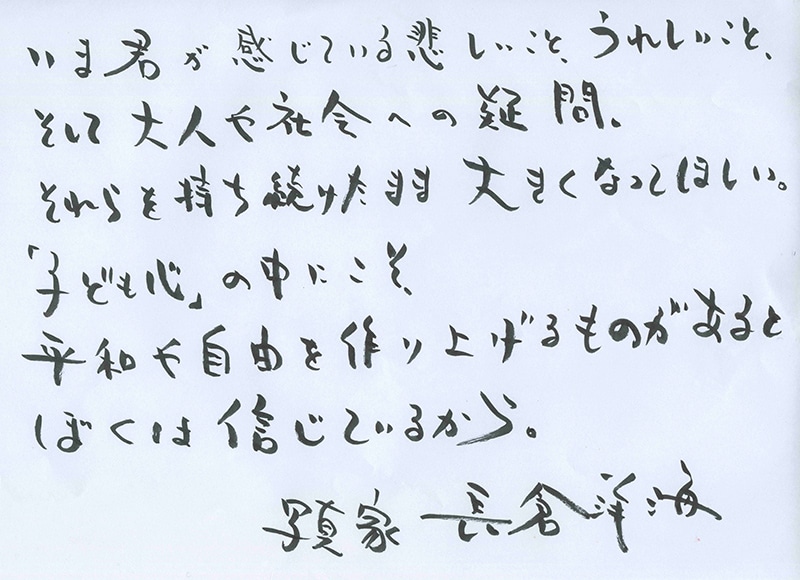 いま君が感じている悲しいこと、うれしいこと、
そして大人や社会への疑問。
それらを持ち続けたまま大きくなってほしい。
「子ども心」の中にこそ、
平和や自由を作り上げるものがあると
ぼくは信じているから。
写真家 長倉洋海